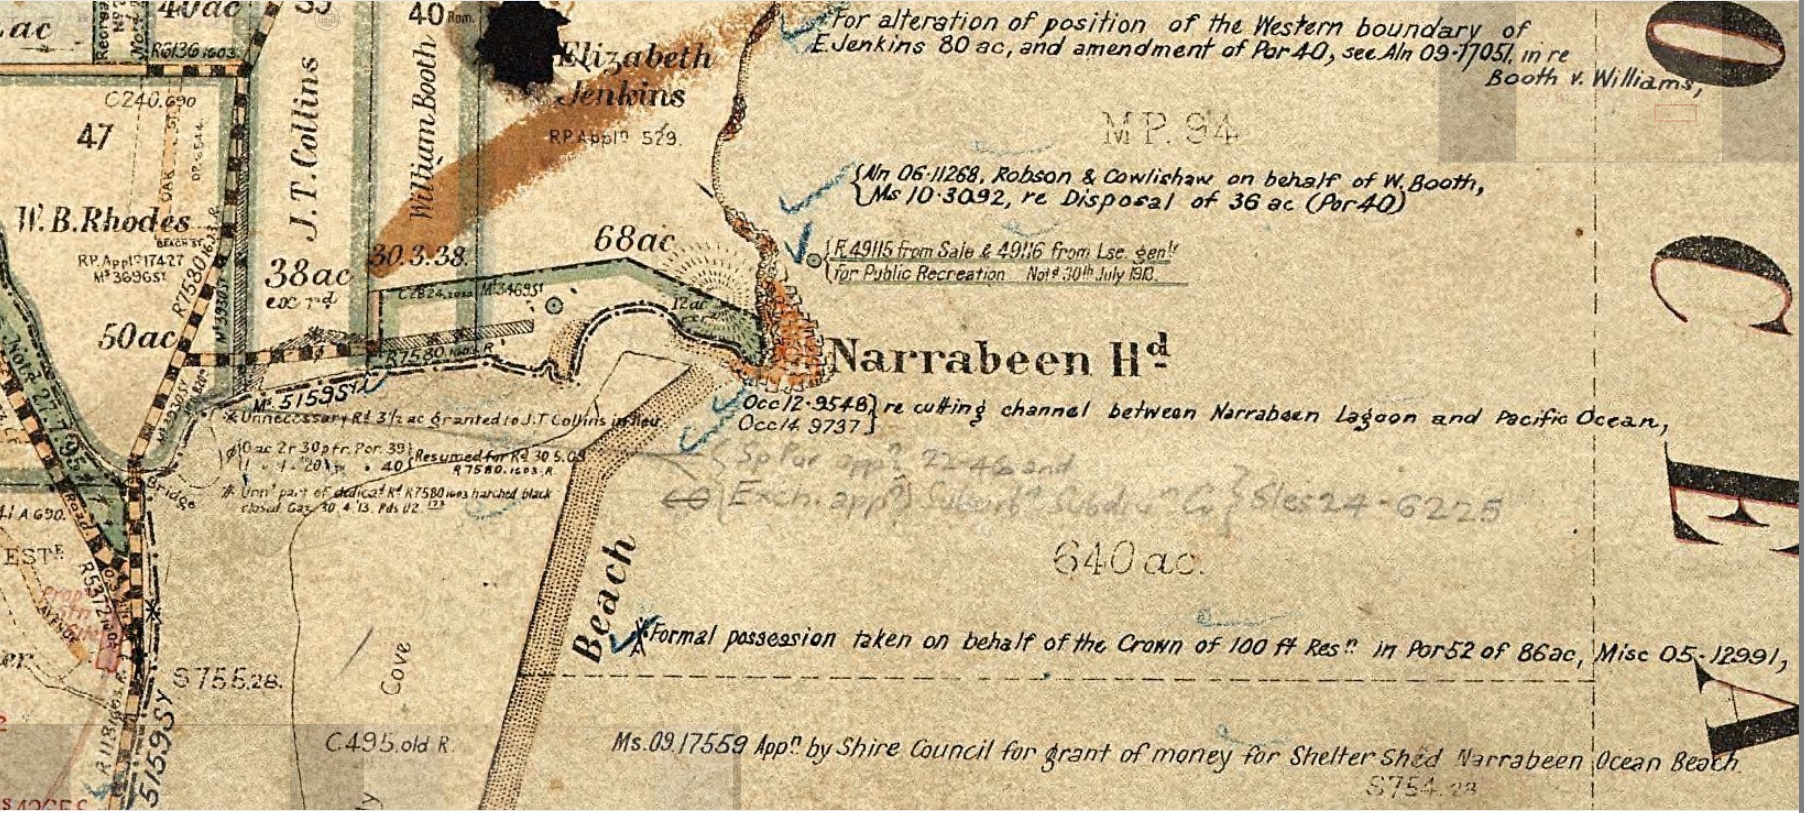 40ac
ac
R6136.1603.
40
Rom.
Elizabeth
Jenkins
RP.Appln 529.
For alteration of position of the Western boundary of
E.Jenkins 80 ac, and amendment of Por 40, see Aln 09·17051, in re
Booth v. Williams,
O
C
E
A
M P. 94
C240.690
47
OAK ST.
J.T. Collins
William Booth
W.B.Rhodes
BEACH ST.
RP.Appln 17427
Ms 3696 SY
R7580.1603.R.
Ms 3930 SY
50ac
38ac
exc rd
30.3.38.
68ac
C2824.2030
Ms 3469 SY
12ac
exc rd
R7580.1603.R
{Aln 06·11268, Robson & Cowlishaw on behalf of W. Booth,
Ms 10·3092, re Disposal of 36 ac (Por 40)
{R.49115 from Sale & 49116 from Lse. genly
for Public Recreation Notd 30th July 1913.
Narrabeen Hd
Ms 5159 SY
Occ 12·9548} re cutting channel between Narrabeen Lagoon and Pacific Ocean,
Occ 14 9737}
Unnecessary Rd 3½ ac granted to J.T Collins in lieu
10ac 2r 30p fr. Por. 39} Resumed for Rd 30 5.09
40} R7580.1603.R
Unny part of dedicatd Rd R7580 1603 hatched black
closed Gaz. 30. 4. 13. Pds 02. 123
Bridge
Road
Notd 27.7.95
Sp Pur appn 22-46 and
Exch. appn Suburbn Subdivn Co } Sles 24-6225
640 ac.
Beach
Formal possession taken on behalf of the Crown of 100 ft Resn in Por 52 of 86ac, Misc 05·12991,
41 A 690.
ESTE
R5372.1603
AVENUE
S 755.28.
Cove
C495.old R.
R1181.1603.R.
5159 SY
Ms.09.17559 Appn by Shire Council for grant of money for Shelter Shed Narrabeen Ocean Beach
S754.28